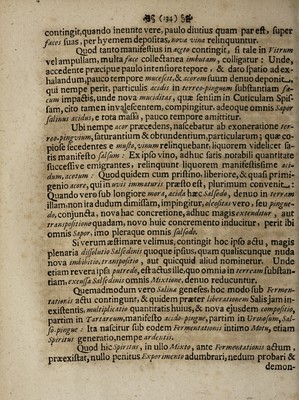 (134)
contingit, quando inenite vere, paulo diutius quam par est, super
fæces suas, per hyemem depositas, nova vina relinquuntur.
Quod tanto manifestius in ægro contingit, si tale in Vitrum
vel ampullam, multa fæce collectanea imbutam, colligatur: Unde,
accedente præcipue paulo intensiore tepore, & dato spatio ad ex-
halandum, pauco tempore mucescit, & acorem suum denuo deponit
qui nempe perit, particulis acidis in terreo-pinguem subtantiam fæ-
cum impactis, unde nova muciditas, quæ sensim in Cuticulam Spis-
sam, cito tamen invalescentem, compingitur, adeoque omnis Sapor
salinus acidus, e tota massa, pauco tempore amittitur.
Ubi nempe acor præcedens, nascebatur ab exoneratione ter-
reo-pinguium, saturantium & obtundentium, particularium; quæ co-
piose secedentes e musto, vinum relinquebant, liquorem videlicet sa-
tis manifesto salsum: Ex ipso vino, adhuc satis notabili quantitate
successive emigrantes, relinquunt liquorem manifestissime aci-
dum, acetum: Quod quidem cum pristino, liberiore, & quasi primi-
genio acore, qui in uvis immaturis præsto est, plurimum convenit.
Quando vero sub longiore mora, acida hæc Salsedo, denuo in terram
illam, non ita dudum dimissam, impingitur, oleositas vero, seu pingue-
do, conjuncta, nova hac concretione, adhuc magis extenditur, aut
transpositione quadam, novo huic concremento inducitur, perit ibi
omnis Sapor, imo pleraque omnis salsedo.
Si verum æstimare velimus, contingit hoc ipso actu, magis
plenaria dissolutio Salsedinis quoque ipsius, quam qualiscunque nuda
nova imbibitio, transpositio, aut quicquid aliud nominetur. Unde
etiam revera ipsa putredo, est actus ille, quo omnia in terream substan-
tiam, excussa Salsedinis omnis Mixtione, denuo reducuntur.
Quemadmodum vero Salina geneses, hoc modo sub Fermen-
tationis actu contingunt, & quidem præter liberationem Salis jam in-
existentis, multiplicatio quantitatis hujus, & nova ejusdem compositio,
partim in Tartarum, manifesto acido-pingue, partim in Urinosum, Sal-
so-pingue: Ita nascitur sub eodem Fermentationis intimo Motu, etiam
Spiritus generatio, nempe ardentis.
Quod hic Spiritus, in ullo Mixto, ante Fermentationis actum,
præexistat, nullo penitus Experimento adumbrari, nedum probari &
demon-